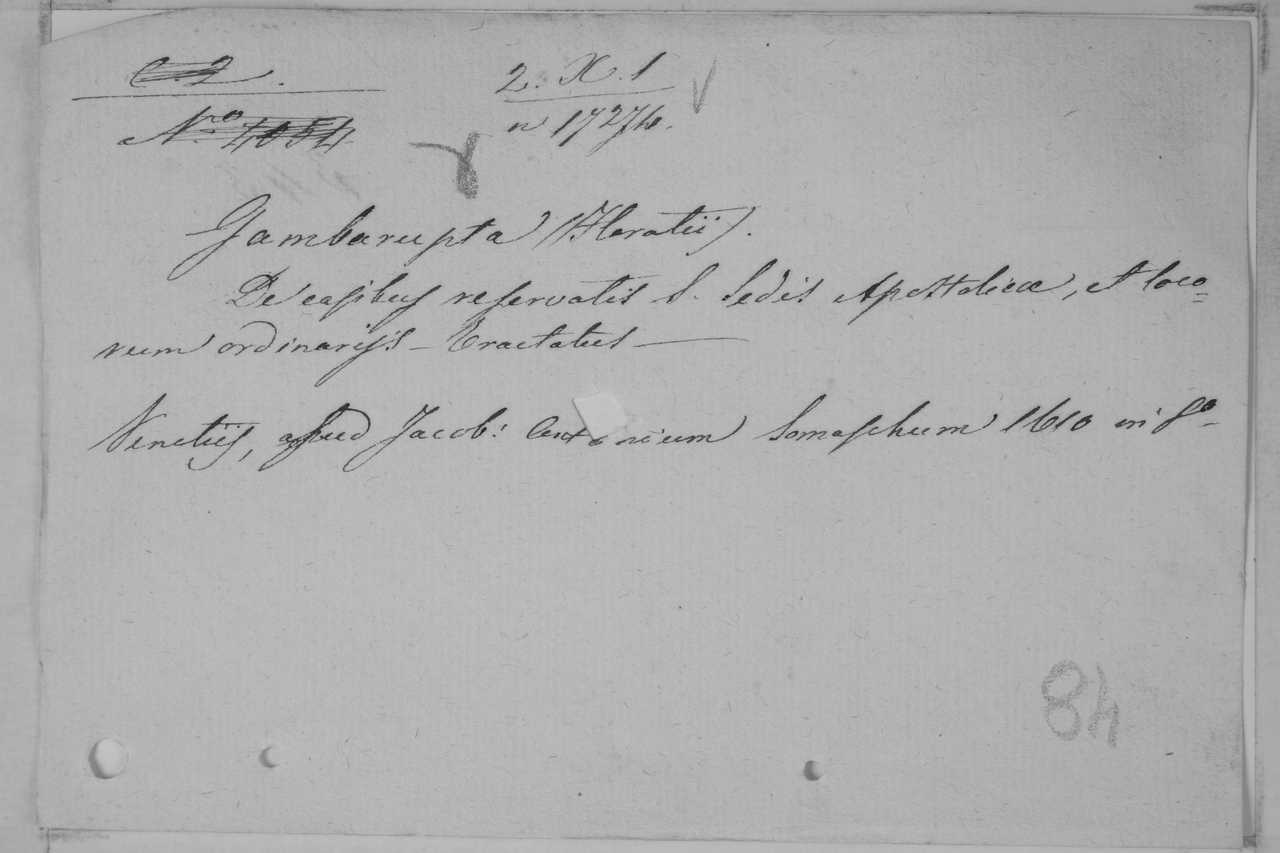 C. 2.
2. X. 1
Nro 4054
n 17274.
Gambarupta (Horatii).
De casibus reservatis S. Sedis Apostolicæ, et loco=
rum ordinarijs – Tractatus —
Venetijs, apud Jacob: Antonium Somaschum 1610 in 8º
84